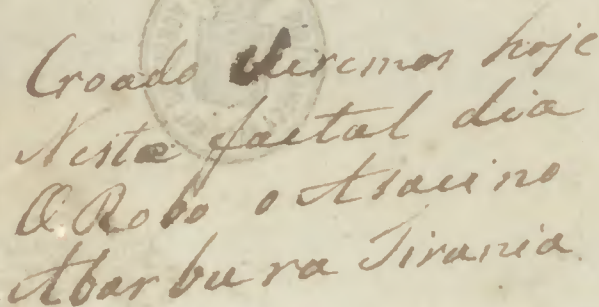 Croado veremos hoje
Neste faetal dia
O Robo o Asacino
Abarbura Tirania